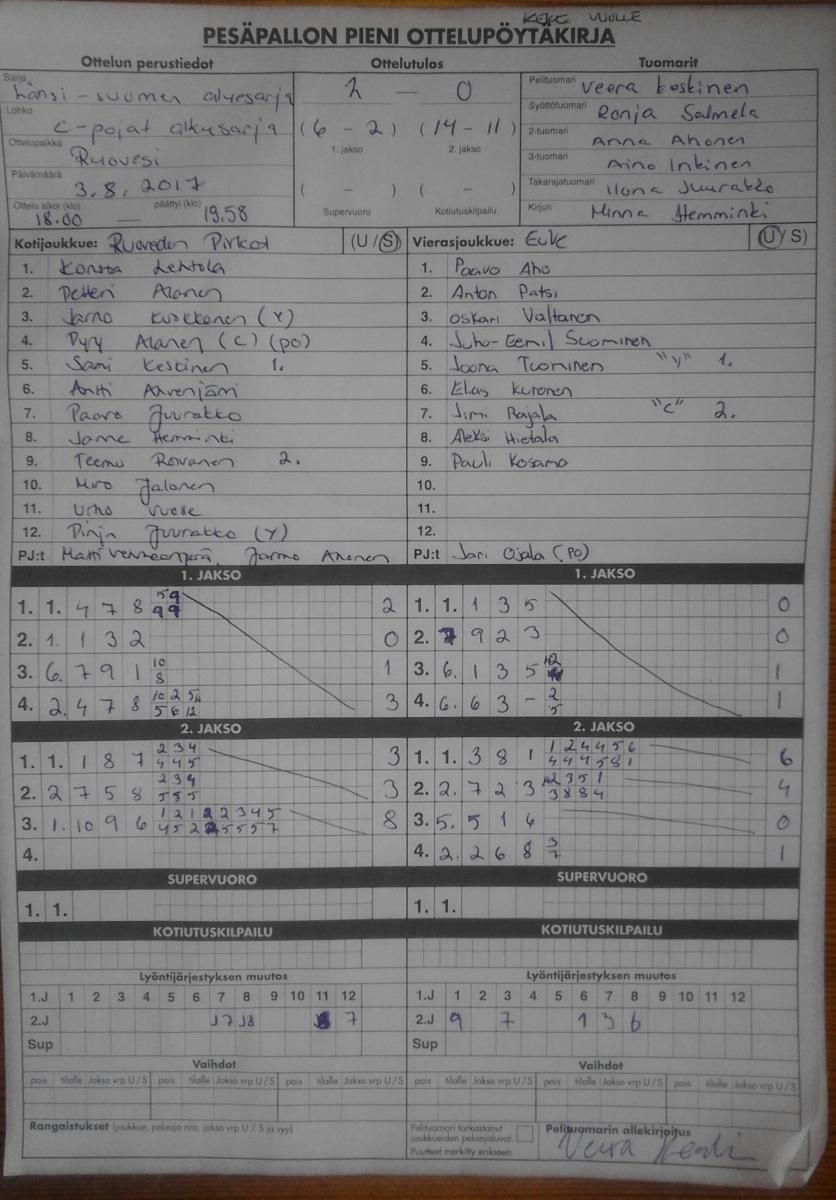 KEKE VUOLLE
PESÄPALLON PIENI OTTELUPÖYTÄKIRJA
Ottelun perustiedot Ottelutulos Tuomarit
Sarja Länsi-suomen aluesarja 2 — 0 Pelituomari Veera Koskinen
Lohko C-pojat alkusarja (6 - 2) (14 - 11) Syöttötuomari Ronja Salmela
Ottelupaikka Ruovesi 1. jakso 2. jakso 2-tuomari Anna Ahonen
Päivämäärä 3.8.2017 ( - ) ( - ) 3-tuomari Aino Inkinen
Ottelu alkoi (klo) 18.00 — päättyi (klo) 19.58 Supervuoro Kotiutuskilpailu Takarajatuomari Ilona Juurakko
Kirjuri Minna Hemminki
Kotijoukkue: Ruoveden Pirkat (U / S) Vierasjoukkue: EuVe (U / S)
1. Konsta Lehtola 1. Paavo Aho
2. Petteri Alanen 2. Anton Patsi
3. Jarno Kuokkanen (Y) 3. Oskari Valtanen
4. Pyry Alanen (C) (PO) 4. Juho-Eemil Suominen
5. Sami Keskinen 1. 5. Joona Tuominen "y" 1.
6. Antti Ahvenjärvi 6. Elias Kuronen
7. Paavo Juurakko 7. Jimi Rajala "C" 2.
8. Janne Hemminki 8. Aleksi Hietala
9. Teemu Roivanen 2. 9. Pauli Kosamo
10. Miro Jalonen 10.
11. Urho Vuolle 11.
12. Pinja Juurakko (Y) 12.
PJ:t Matti Jarmo Ahonen PJ:t Jari Ojala (PO)
1. JAKSO 1. JAKSO
1. 1. 4 7 8 2 1. 1. 1 3 5 0
2. 1. 1 3 2 0 2. 9 2 3 0
3. 6. 7 9 1 10 8 1 3. 6. 1 3 5 1
4. 2. 4 7 8 3 4. 6. 6 3 - 2 5 1
2. JAKSO 2. JAKSO
1. 1. 1 8 7 2 3 4 3 1. 1. 3 8 1 1 2 4 4 5 6 6
4 4 5 4 4 4 5 8 1
2. 2 7 5 8 2 3 4 3 2. 2. 7 2 3 2 3 5 1 4
5 5 5 3 8 8 4
3. 1. 10 9 6 1 2 1 2 2 3 4 5 8 3. 5. 5 1 6 0
4 5 2 2 5 5 5 7
4. 4. 2. 2 6 8 3 7 1
SUPERVUORO SUPERVUORO
1. 1. 1. 1.
KOTIUTUSKILPAILU KOTIUTUSKILPAILU
Lyöntijärjestyksen muutos Lyöntijärjestyksen muutos
1.J 1 2 3 4 5 6 7 8 9 10 11 12 1.J 1 2 3 4 5 6 7 8 9 10 11 12
2.J J7 J8 7 2.J 9 7 1 3 6
Sup Sup
Vaihdot Vaihdot
pois tilalle Jakso vrp U / S pois tilalle Jakso vrp U / S pois tilalle Jakso vrp U / S pois tilalle Jakso vrp U / S pois tilalle Jakso vrp U / S pois tilalle Jakso vrp U / S
Rangaistukset (joukkue, pelaaja nro, jakso vrp U / S ja syy) Pelituomari tarkastanut joukkueiden pelaajaluvat. Puutteet merkitty erikseen. Pelituomarin allekirjoitus